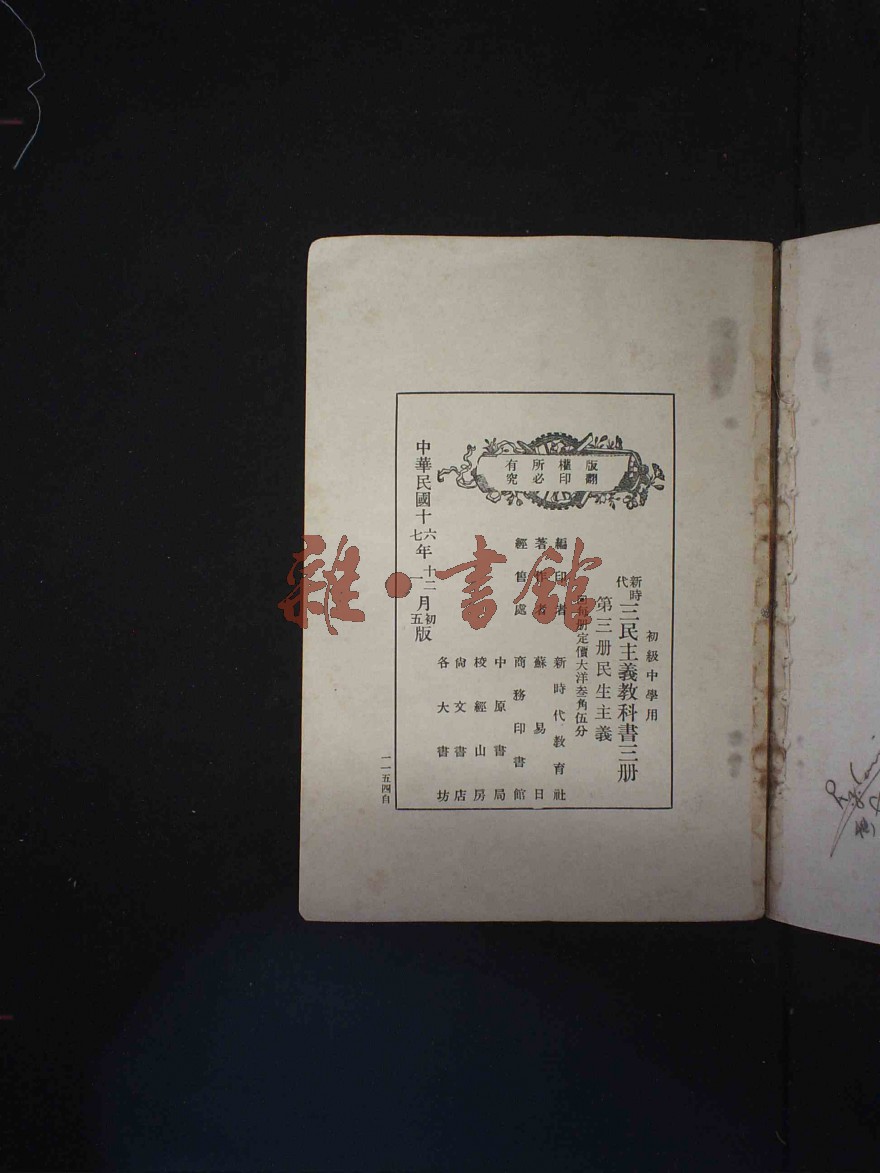 版權所有
翻印必究
初級中學用
新時代三民主義教科書三册
第三册民生主義
每册定價大洋叁角伍分
編印者 新時代教育社
著作者 蘇易日
經售處 商務印書館
中原書局
校經山房
尙文書店
各大書坊
中華民國十六年十二月初版
七年一月五版
一一五四自
雜·書館